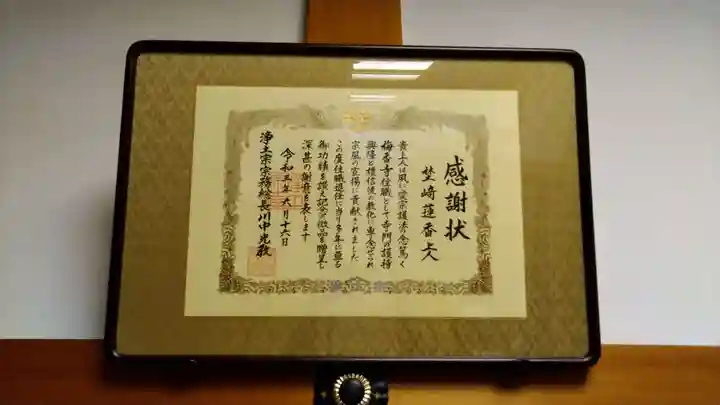 感謝状
埜﨑蓮香上人
貴上人は夙に愛宗護法の念篤く
梅香寺住職として寺門の護持
興隆と檀信徒の教化に専念せられ
宗風の宣揚に貢献されました
この度住職退任に当り多年に亘る
御功績を讃え記念品を贈呈し
深甚の謝意を表します
令和三年六月十六日
浄土宗宗務総長川中光敎